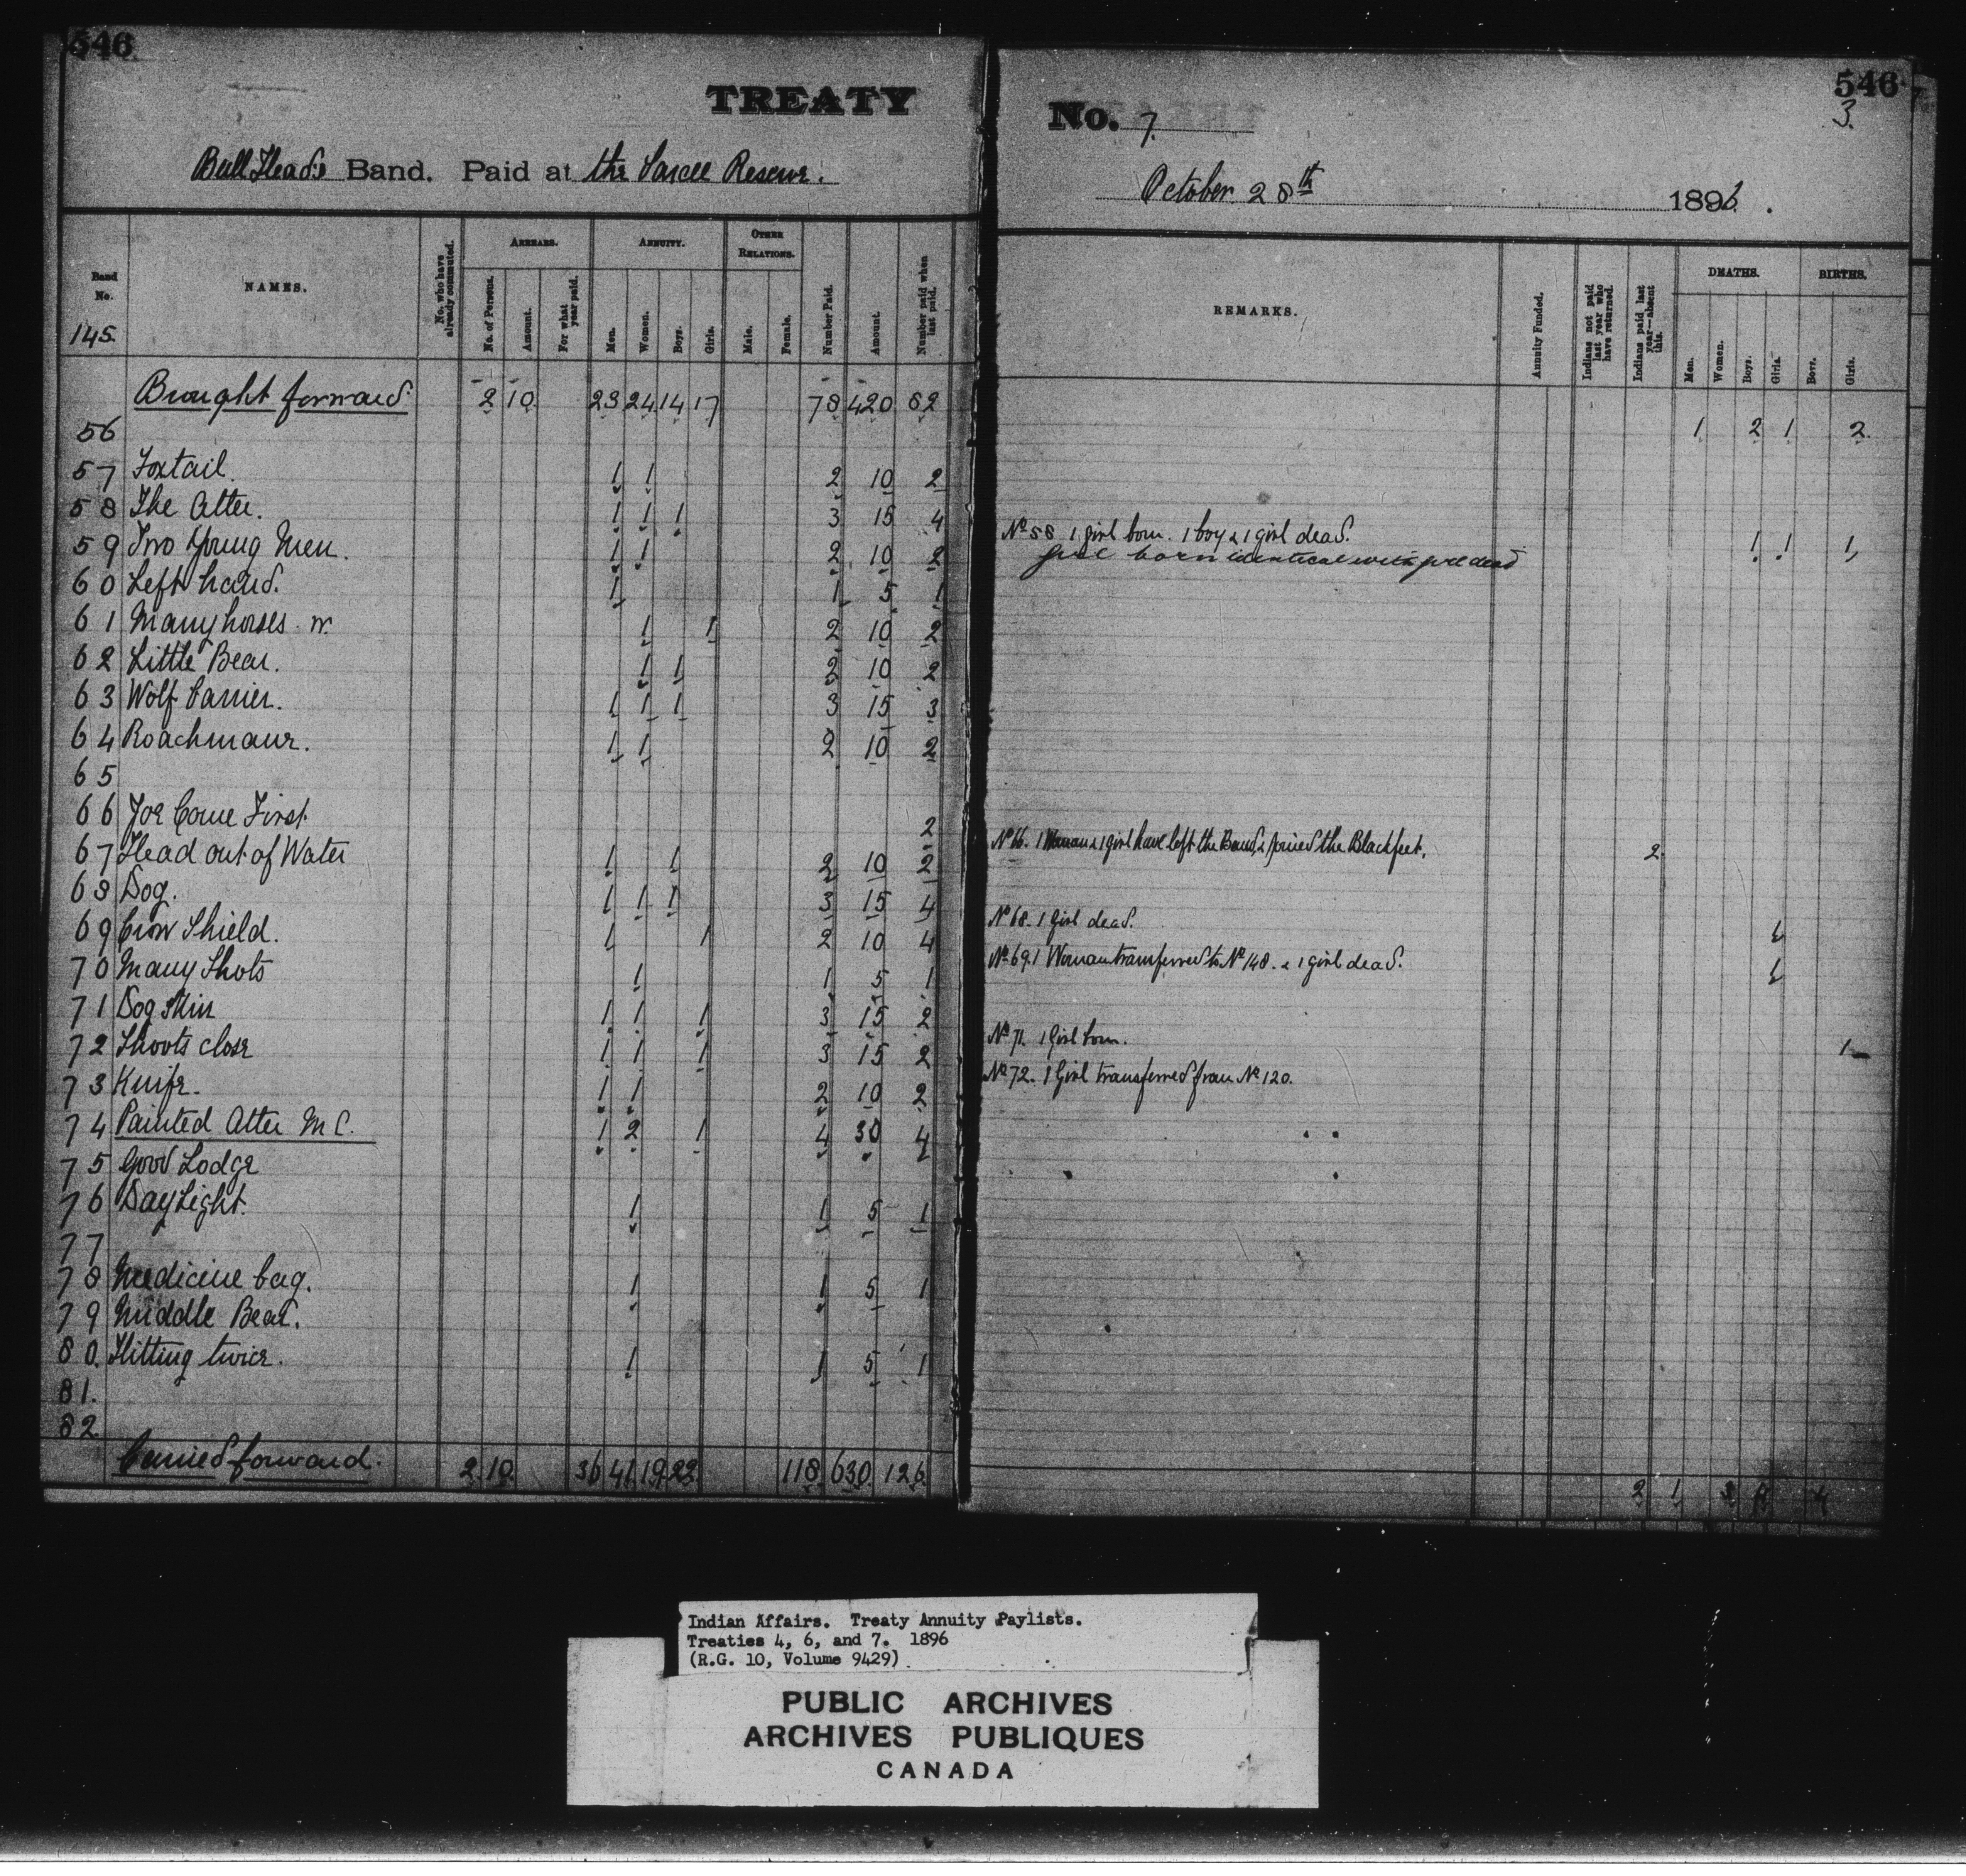 546
TREATY
Bull Head's Band. Paid at the Sarcee Reserve.
Band No. NAMES. No. who have already commuted. ARREARS. No. of Persons. Amount. For what year paid. ANNUITY. Men. Women. Boys. Girls. OTHER RELATIONS. Male. Female. Number Paid. Amount. Number paid when last paid.
145.
Brought forward 2 10 23 24 14 17 78 420 82
56
57 Foxtail. 1 1 2 10 2
58 The Otter. 1 1 1 3 15 4
59 Two Young Men. 1 1 2 10 2
60 Left hand. 1 1 5 1
61 Many horses w. 1 1 2 10 2
62 Little Bear. 1 1 2 10 2
63 Wolf Carrier. 1 1 1 3 15 3
64 Roachmane. 1 1 2 10 2
65
66 Joe Come First 2
67 Head out of Water 1 1 2 10 2
68 Dog. 1 1 1 3 15 4
69 Crow Shield. 1 1 2 10 4
70 Many Shots 1 1 5 1
71 Dog Skin 1 1 1 3 15 2
72 Shoots close 1 1 1 3 15 2
73 Knife. 1 1 2 10 2
74 Painted Otter M C. 1 2 1 4 30 4
75 Good Lodge
76 Day Light. 1 1 5 1
77
78 Medicine bag. 1 1 5 1
79 Middle Bear.
80. Hitting twice. 1 1 5 1
81.
82
Carried forward. 2 10 36 41 19 22 118 630 126
546
3.
No. 7.
October 28th 1896.
REMARKS. Annuity Funded. Indians not paid last year who have returned. Indians paid last year—absent this. DEATHS. Men. Women. Boys. Girls. BIRTHS. Boys. Girls.
1 2 1 2
No 58 1 girl born. 1 boy & 1 girl dead. 1 1 1
girl born identical with girl dead
No 66. 1 Woman & 1 girl have left the Band, & joined the Blackfeet. 2
No 68. 1 Girl dead. 1
No 69. 1 Woman transferred to No 148. & 1 girl dead. 1
No 71. 1 Girl born. 1
No 72. 1 Girl transferred from No 120.
2 1 3 4
Indian Affairs. Treaty Annuity Paylists.
Treaties 4, 6, and 7. 1896
(R.G. 10, Volume 9429)
PUBLIC ARCHIVES
ARCHIVES PUBLIQUES
CANADA